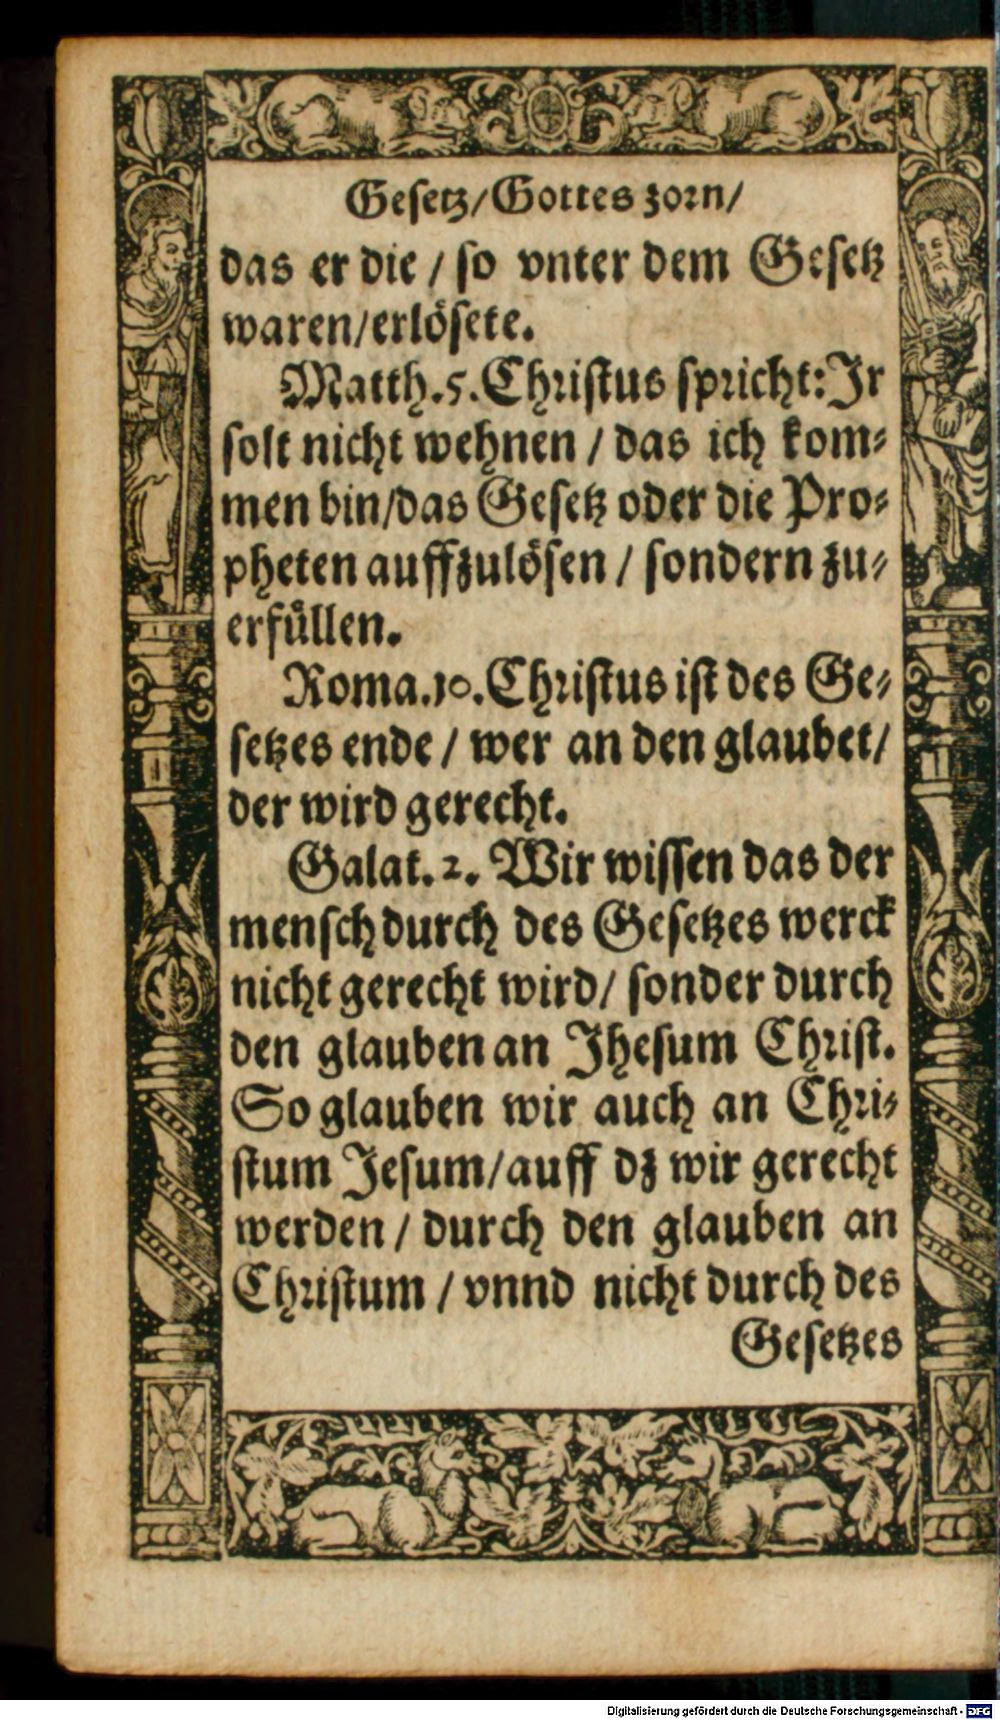 Gesetz/Gottes zorn/
das er die / so vnter dem Gesetz
waren/erlösete.
Matth.5.Christus spricht:Jr
solt nicht wehnen / das ich kom⸗
men bin/das Gesetz oder die Pro⸗
pheten auffzulösen / sondern zu⸗
erfüllen.
Roma.10.Christus ist des Ge⸗
setzes ende / wer an den glaubet/
der wird gerecht.
Galat.2. Wir wissen das der
mensch durch des Gesetzes werck
nicht gerecht wird/ sonder durch
den glauben an Jhesum Christ.
So glauben wir auch an Chri⸗
stum Jesum/auff dz wir gerecht
werden / durch den glauben an
Christum / vnnd nicht durch des
Gesetzes
Digitalisierung gefördert durch die Deutsche Forschungsgemeinschaft - DFG